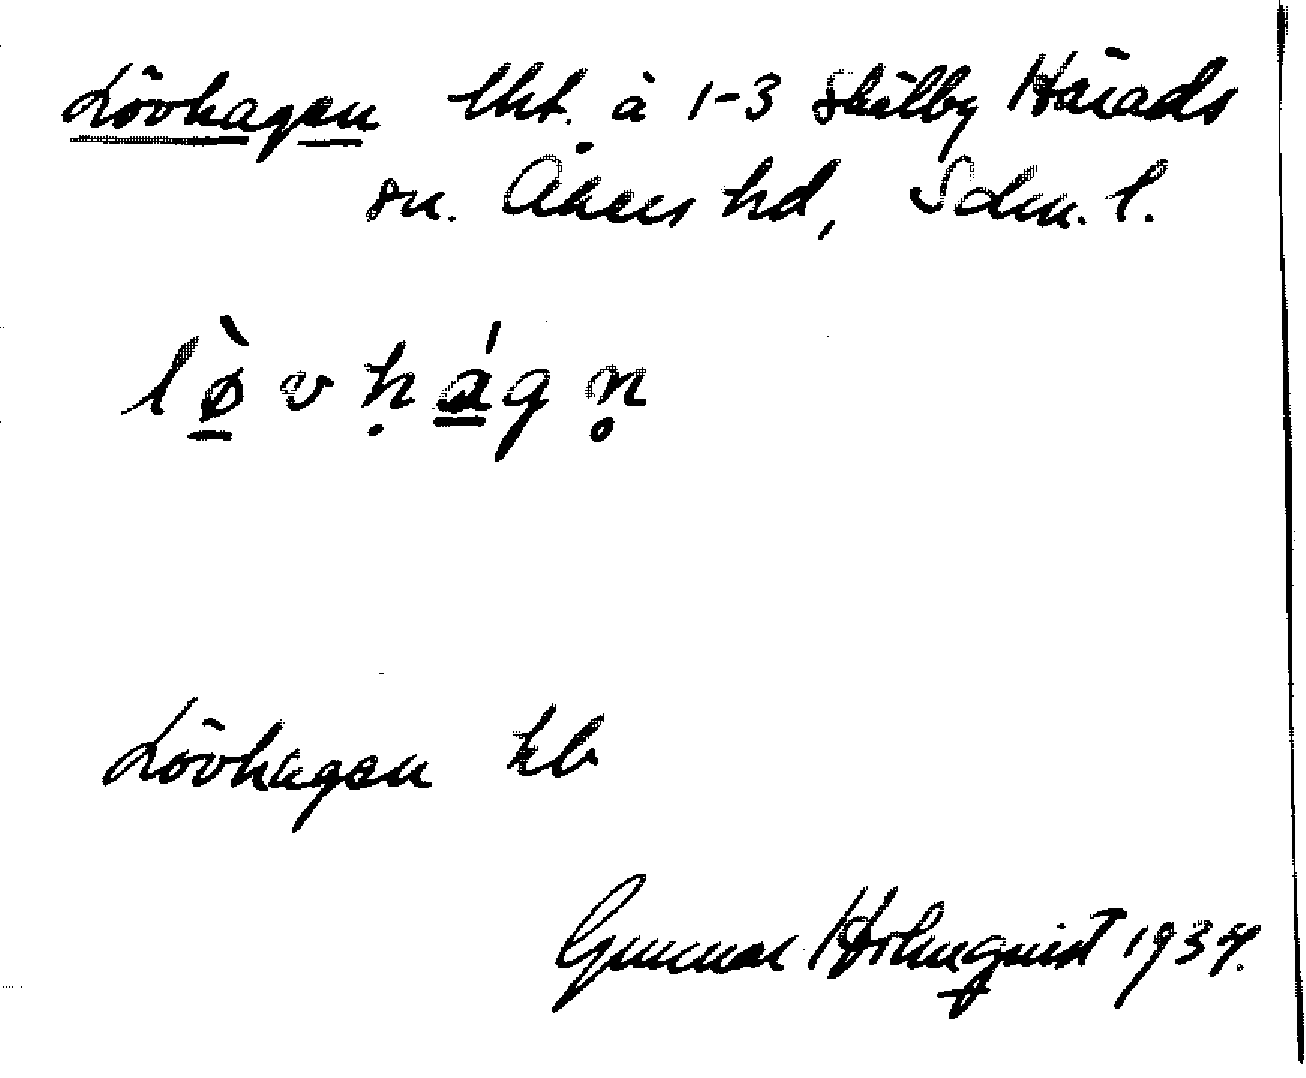 Lövhagen lht. å 1-3 Skälby Härads
sn. Åkers hd, Sdm. l.
lø̱̀vḥá̱gn̥
Lövhagen kb
Gunnar Holmquist 1934.